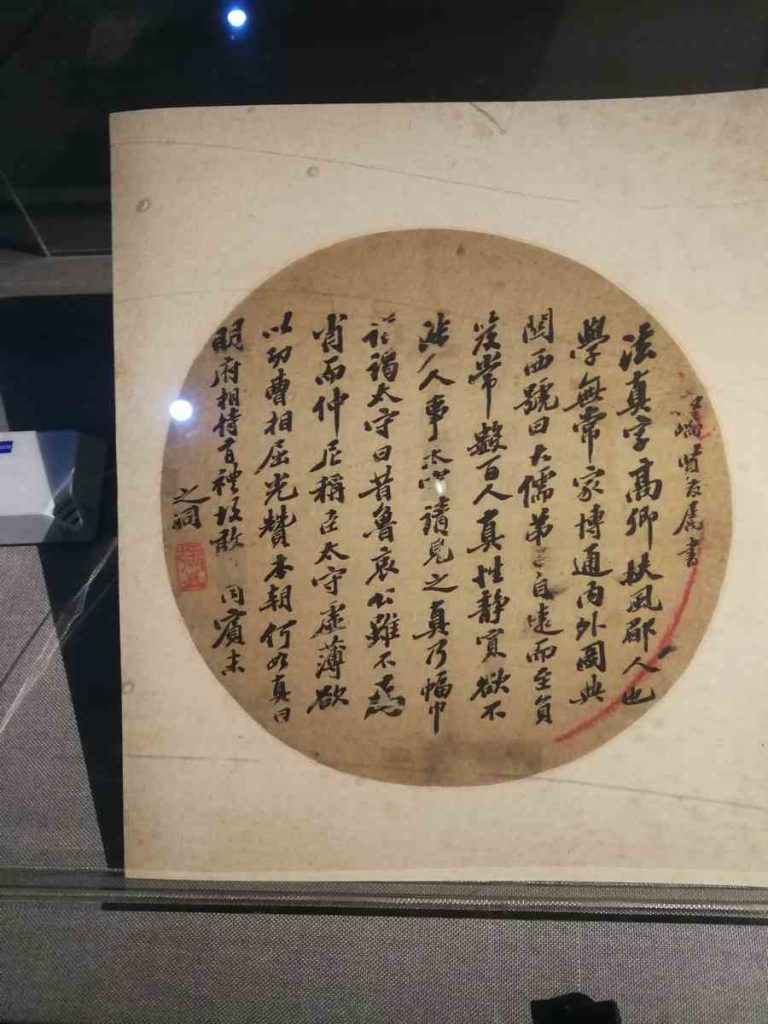 賢友属書
法真字高卿扶風郿人也
學無常家博通内外圖典
関西號曰大儒弟自遠而至負
笈常數百人真性静寡欲不
涉人事太請見之真乃幅巾
詣謁太守曰昔魯哀公雖不
肖而仲尼稱臣太守虛薄欲
以功曹相屈光贊本朝何如真曰
明府相待有禮故敢同賓末
之洞